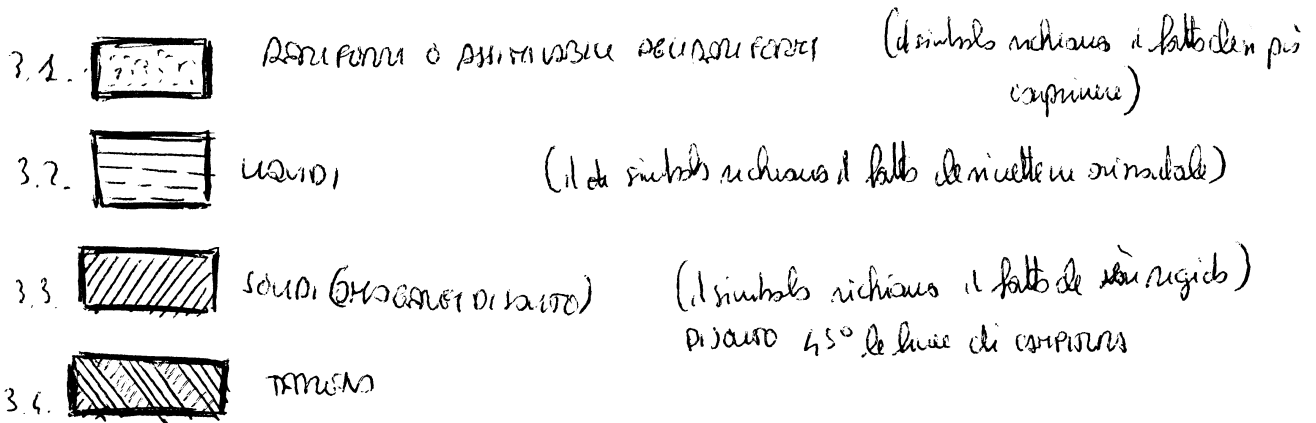 3.1. AERIFORMI O ASSIMILABILI AGLI AERIFORMI (il simbolo richiama il fatto che si può
comprimere)
3.2. LIQUIDI (il simbolo richiama il fatto che si mette in orizzontale)
3.3. SOLIDI (OMOGENEI DI SOLITO) (il simbolo richiama il fatto che è rigido)
DI SOLITO 45° le linee di CAMPITURA
3.4. TERRENO